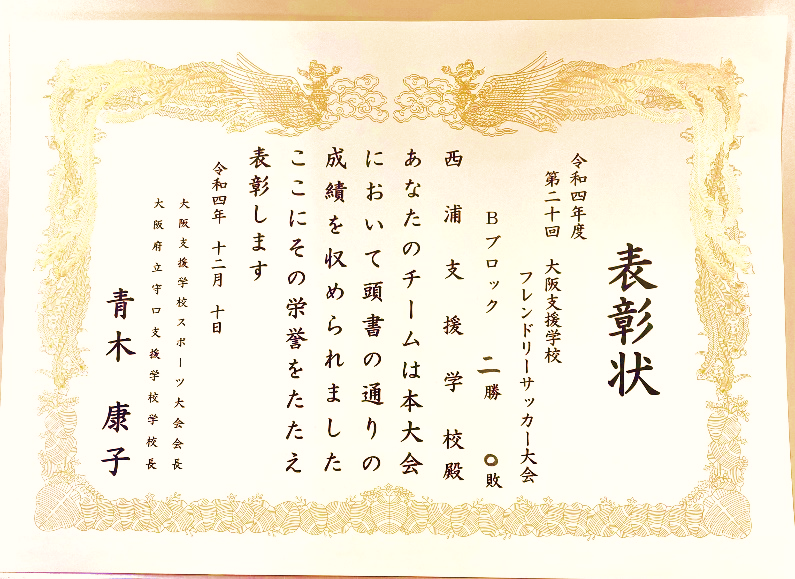 表彰状
令和四年度
第二十回 大阪支援学校
フレンドリーサッカー大会
Bブロック 二勝 〇敗
西浦支援学校殿
あなたのチームは本大会
において頭書の通りの
成績を収められました
ここにその栄誉をたたえ
表彰します
令和四年 十二月 十日
大阪支援学校スポーツ大会会長
大阪府立守口支援学校学校長
青木 康子